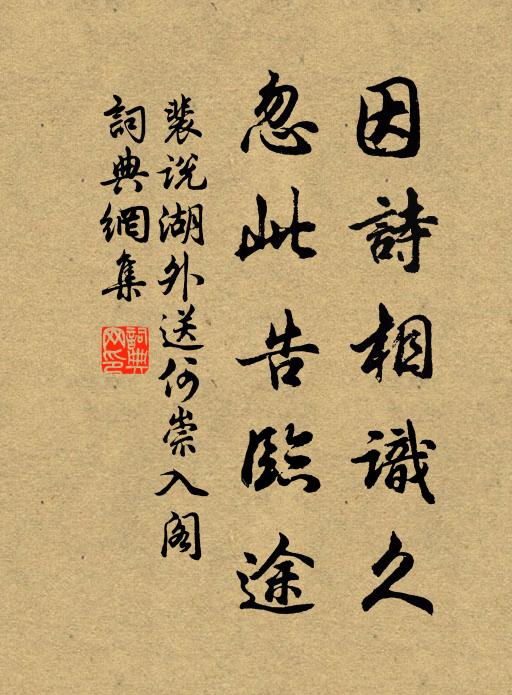 因詩相識久
忽此告臨途
裴说湖外送何崇入阁
詞典網集
詞典網印